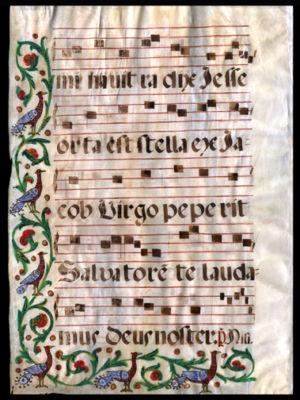 mi navit ra dix Jesse
orta est stella ex Ja-
cob Virgo pe pe rit
Salvatorē te lauda-
mus deus noster.